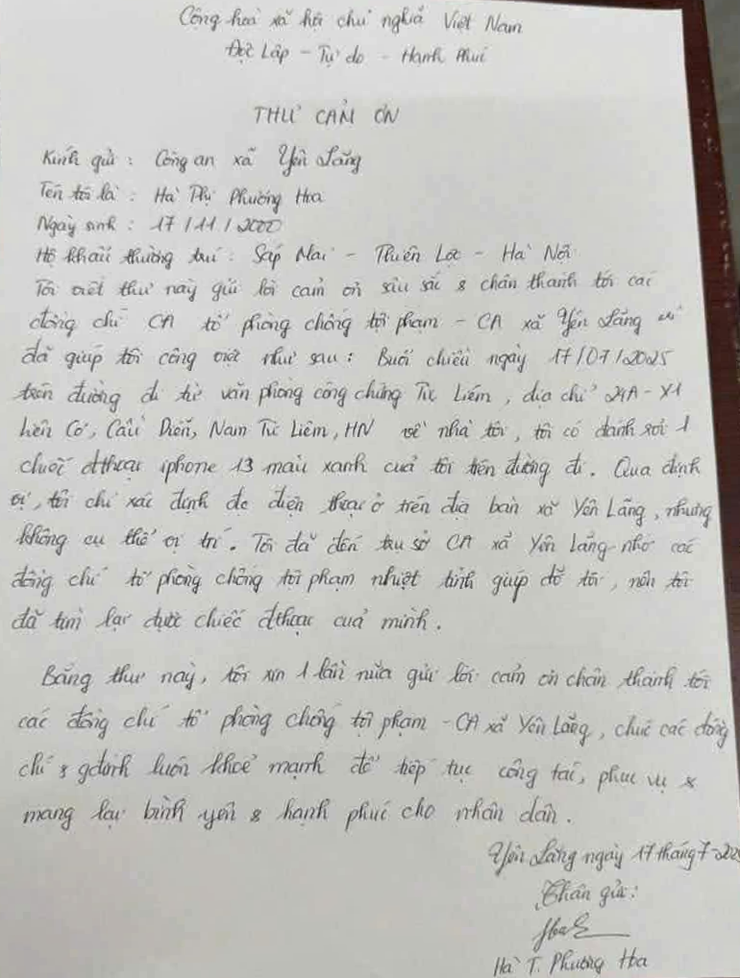 Cộng hoà xã hội chủ nghĩa Việt Nam
Độc Lập - Tự do - Hạnh Phúc
THƯ CẢM ƠN
Kính gửi : Công an xã Yên Lãng
Tên tôi là : Hà Thị Phương Hoa
Ngày sinh : 17/11/2000
Hộ khẩu thường trú : Sáp Mai - Thiên Lộc - Hà Nội
Tôi viết thư này gửi lời cảm ơn sâu sắc & chân thành tới các
đồng chí CA tổ phòng chống tội phạm - CA xã Yên Lãng vì
đã giúp tôi công việc như sau : Buổi chiều ngày 17/07/2025
trên đường đi từ văn phòng công chứng Từ Liêm, địa chỉ 24A - X1
liên Cơ, Cầu Diễn, Nam Từ Liêm, HN về nhà tôi, tôi có đánh rơi 1
chiếc đthoại iphone 13 màu xanh của tôi trên đường đi. Qua định
vị, tôi chỉ xác định đc điện thoại ở trên địa bàn xã Yên Lãng, nhưng
không cụ thể vị trí. Tôi đã đến trụ sở CA xã Yên Lãng nhờ các
đồng chí tổ phòng chống tội phạm nhiệt tình giúp đỡ tôi, nên tôi
đã tìm lại được chiếc đthoại của mình.
Bằng thư này, tôi xin 1 lần nữa gửi lời cảm ơn chân thành tới
các đồng chí tổ phòng chống tội phạm - CA xã Yên Lãng, chúc các đồng
chí & gđình luôn khoẻ mạnh để tiếp tục công tác, phục vụ &
mang lại bình yên & hạnh phúc cho nhân dân.
Yên Lãng ngày 17 tháng 7-202
Chân gửi :
Hà T. Phương Hoa